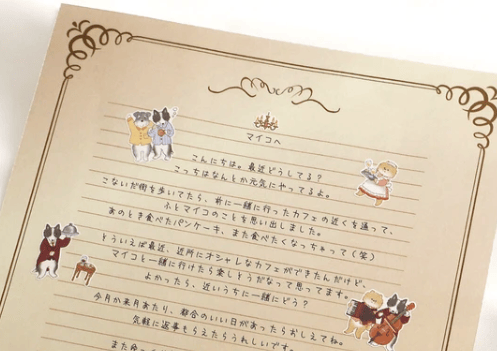 マイコへ
こんにちは。最近どうしてる？
こっちはなんとか元気にやってるよ。
こないだ街を歩いてたら、前に一緒に行ったカフェの近くを通って、
ふとマイコのことを思い出しました。
あのとき食べたパンケーキ、また食べたくなっちゃって(笑)
とういえば最近、近所にオシャレなカフェができたんだけど、
マイコと一緒に行けたら楽しそうだなって思ってます。
よかったら、近いうちに一緒にどう？
今月か来月あたり、都合のいい日があったらおしえてね。
気軽に返事もらえたらうれしいです。
またゆっ